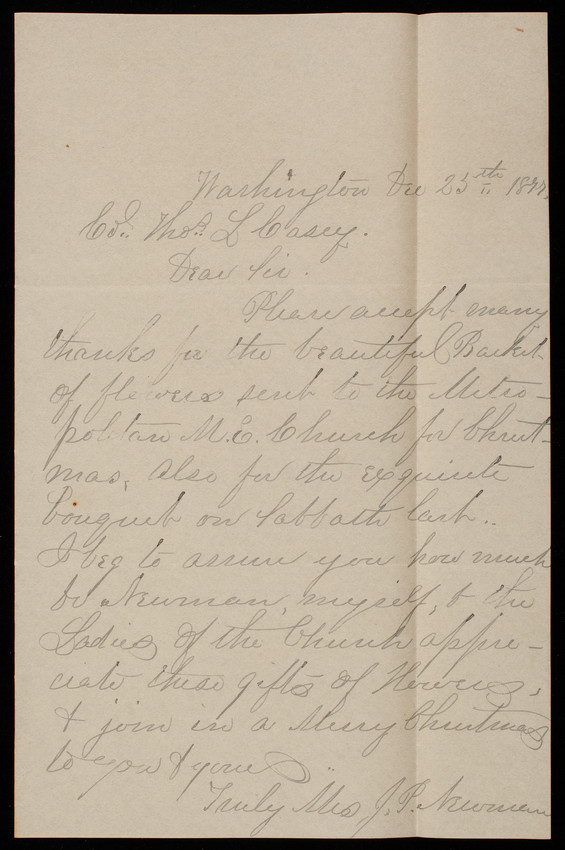 Washington Dec 25th 1877.
Col. Thos. L Casey.
Dear Sir.
Please accept many
thanks for the beautiful Basket
of flowers sent to the Metro-
politan M.E. Church for Christ-
mas, also for the exquisite
bouquet on Sabbath last..
I beg to assure you how much
Dr Newman, myself, & the
Ladies of the Church appre-
ciate these gifts of flowers,
& join in a Merry Christmas
to you & yours
Truly Mrs J. P. Newman